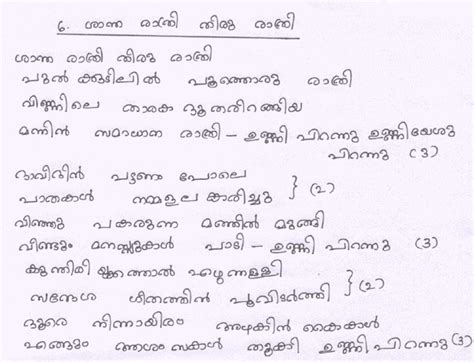 6. ശാന്ത രാത്രി തിരു രാത്രി
ശാന്ത രാത്രി തിരു രാത്രി
പുൽ കുടിലിൽ പൂത്തൊരു രാത്രി
വിണ്ണിലെ താരക ദൂതരിറങ്ങിയ
മന്നിൻ സമാധാന രാത്രി - ഉണ്ണി പിറന്നു ഉണ്ണിയേശു
പിറന്നു (3)
ദാവീദിൻ പട്ടണം പോലെ
പാതകൾ നമ്മളലങ്കാരിച്ചു } (2)
വീഞ്ഞു പകരുന്ന മണ്ണിൽ മുങ്ങി
വീണ്ടും മനസ്സുകൾ പാടി - ഉണ്ണി പിറന്നു (3)
കുന്തിരിക്കത്താൽ എഴുന്നള്ളി
സന്ദേശ ഗീതത്തിൻ പൂവിടർത്തി } (2)
ദൂരെ നിന്നായിരം അഴകിൻ കൈകൾ
എങ്ങും ആശംസകൾ തൂകി ഉണ്ണി പിറന്നു (3)